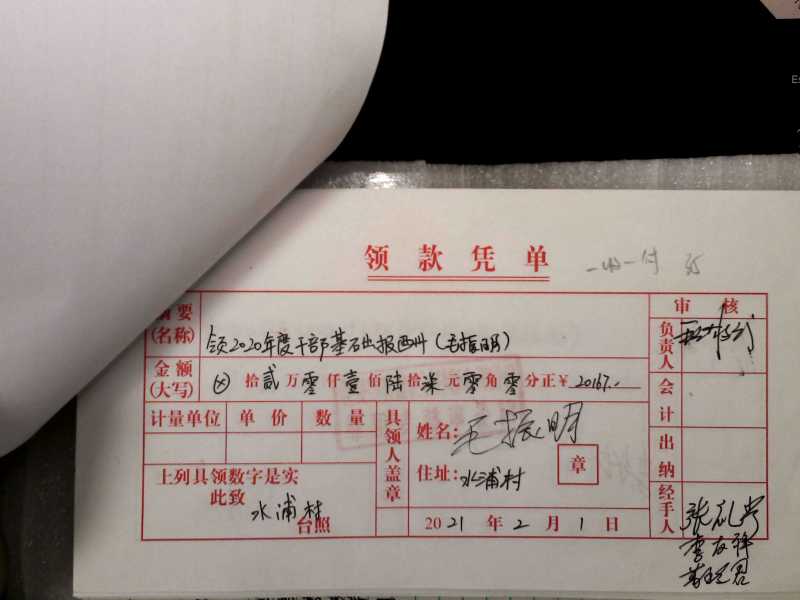 领款凭单
一收一付
摘要
(名称)
领2020年度干部基础报酬(毛振明)
审核
负责人
金额
(大写)
⊗拾贰万零仟壹佰陆拾柒元零角零分正¥20167.-
会计
计量单位 单价 数量
具领人盖章
姓名:毛振明
住址:水浦村
章
出纳
上列具领数字是实
此致
水浦村
台照
2021年2月1日
经手人
李友祥